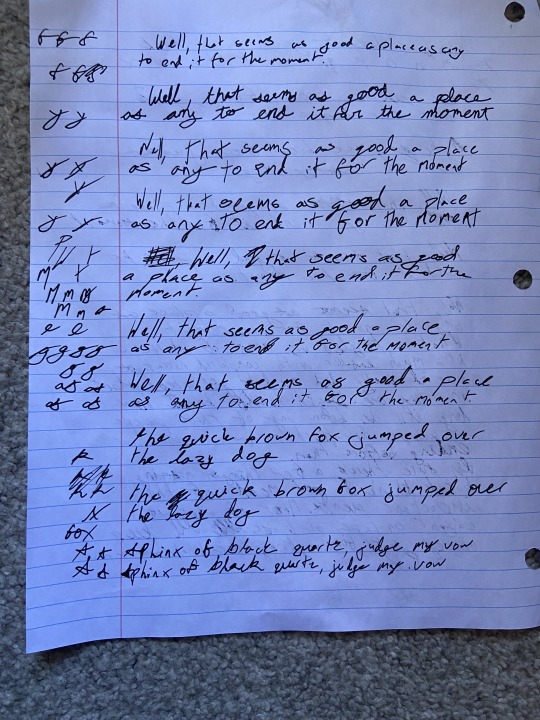 f f f Well, that seems as good a place as any
f to end it for the moment.
Well, that seems as good a place
y y as any to end it for the moment
Well, that seems as good a place
y y as any to end it for the moment
y Well, that seems as good a place
y y as any to end it for the moment
p
Well, that seems as good
M a place as any to end it for the
M m moment.
M m
e e Well, that seems as good a place
g g g g as any to end it for the moment
g g
as as Well, that seems as good a place
as as as any to end it for the moment
the quick brown fox jumped over
k the lazy dog
the quick brown fox jumped over
the lazy dog
fox
sphinx of black quartz, judge my vow
sphinx of black quartz, judge my vow